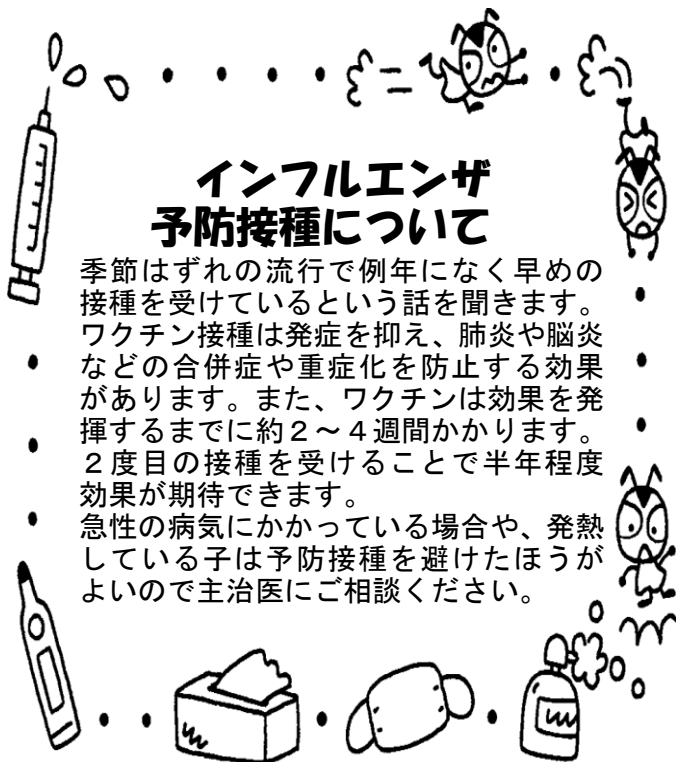 インフルエンザ
予防接種について
季節はずれの流行で例年になく早めの
接種を受けているという話を聞きます。
ワクチン接種は発症を抑え、肺炎や脳炎
などの合併症や重症化を防止する効果
があります。また、ワクチンは効果を発
揮するまでに約２～４週間かかります。
２度目の接種を受けることで半年程度
効果が期待できます。
急性の病気にかかっている場合や、発熱
している子は予防接種を避けたほうが
よいので主治医にご相談ください。